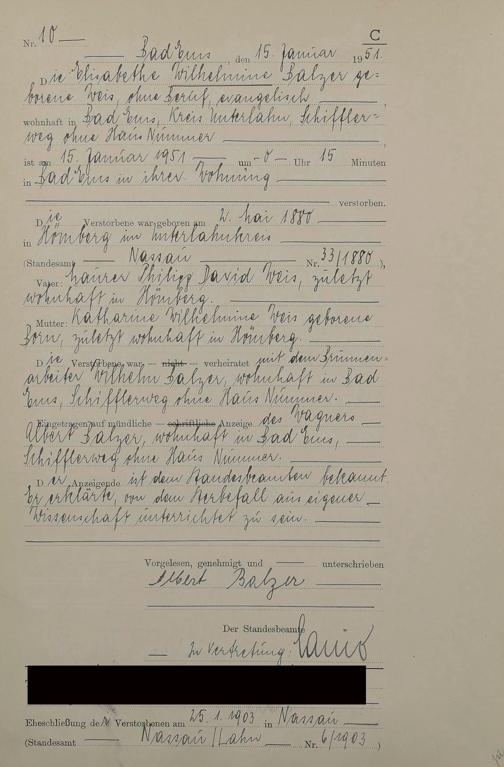 C
Nr. 10
Bad Ems, den 15. Januar 1951.
Die Elisabethe Wilhelmine Balzer ge-
borene Weis, ohne Beruf, evangelisch
wohnhaft in Bad Ems, Kreis Unterlahn, Schiffler-
weg ohne Haus Nummer
ist am 15. Januar 1951 um 0 Uhr 15 Minuten
in Bad Ems in ihrer Wohnung
verstorben.
Die Verstorbene war geboren am 2. Mai 1880
in Hömberg im Unterlahnkreis
(Standesamt Nassau Nr. 33/1880),
Vater: Maurer Philipp David Weis, zuletzt
wohnhaft in Hömberg.
Mutter: Katharine Wilhelmine Weis geborene
Born, zuletzt wohnhaft in Hömberg.
Die Verstorbene war – nicht – verheiratet mit dem Brunnen-
arbeiter Wilhelm Balzer, wohnhaft in Bad
Ems, Schifflerweg ohne Haus Nummer.
Eingetragen auf mündliche – schriftliche Anzeige des Wagners
Albert Balzer, wohnhaft in Bad Ems,
Schifflerweg ohne Haus Nummer.
Der Anzeigende ist dem Standesbeamten bekannt.
Er erklärte, von dem Sterbefall aus eigener
Wissenschaft unterrichtet zu sein.
Vorgelesen, genehmigt und unterschrieben
Albert Balzer
Der Standesbeamte
In Vertretung:
Eheschließung der Verstorbenen am 25.1.1903 in Nassau
(Standesamt Nassau/Lahn Nr. 6/1903)